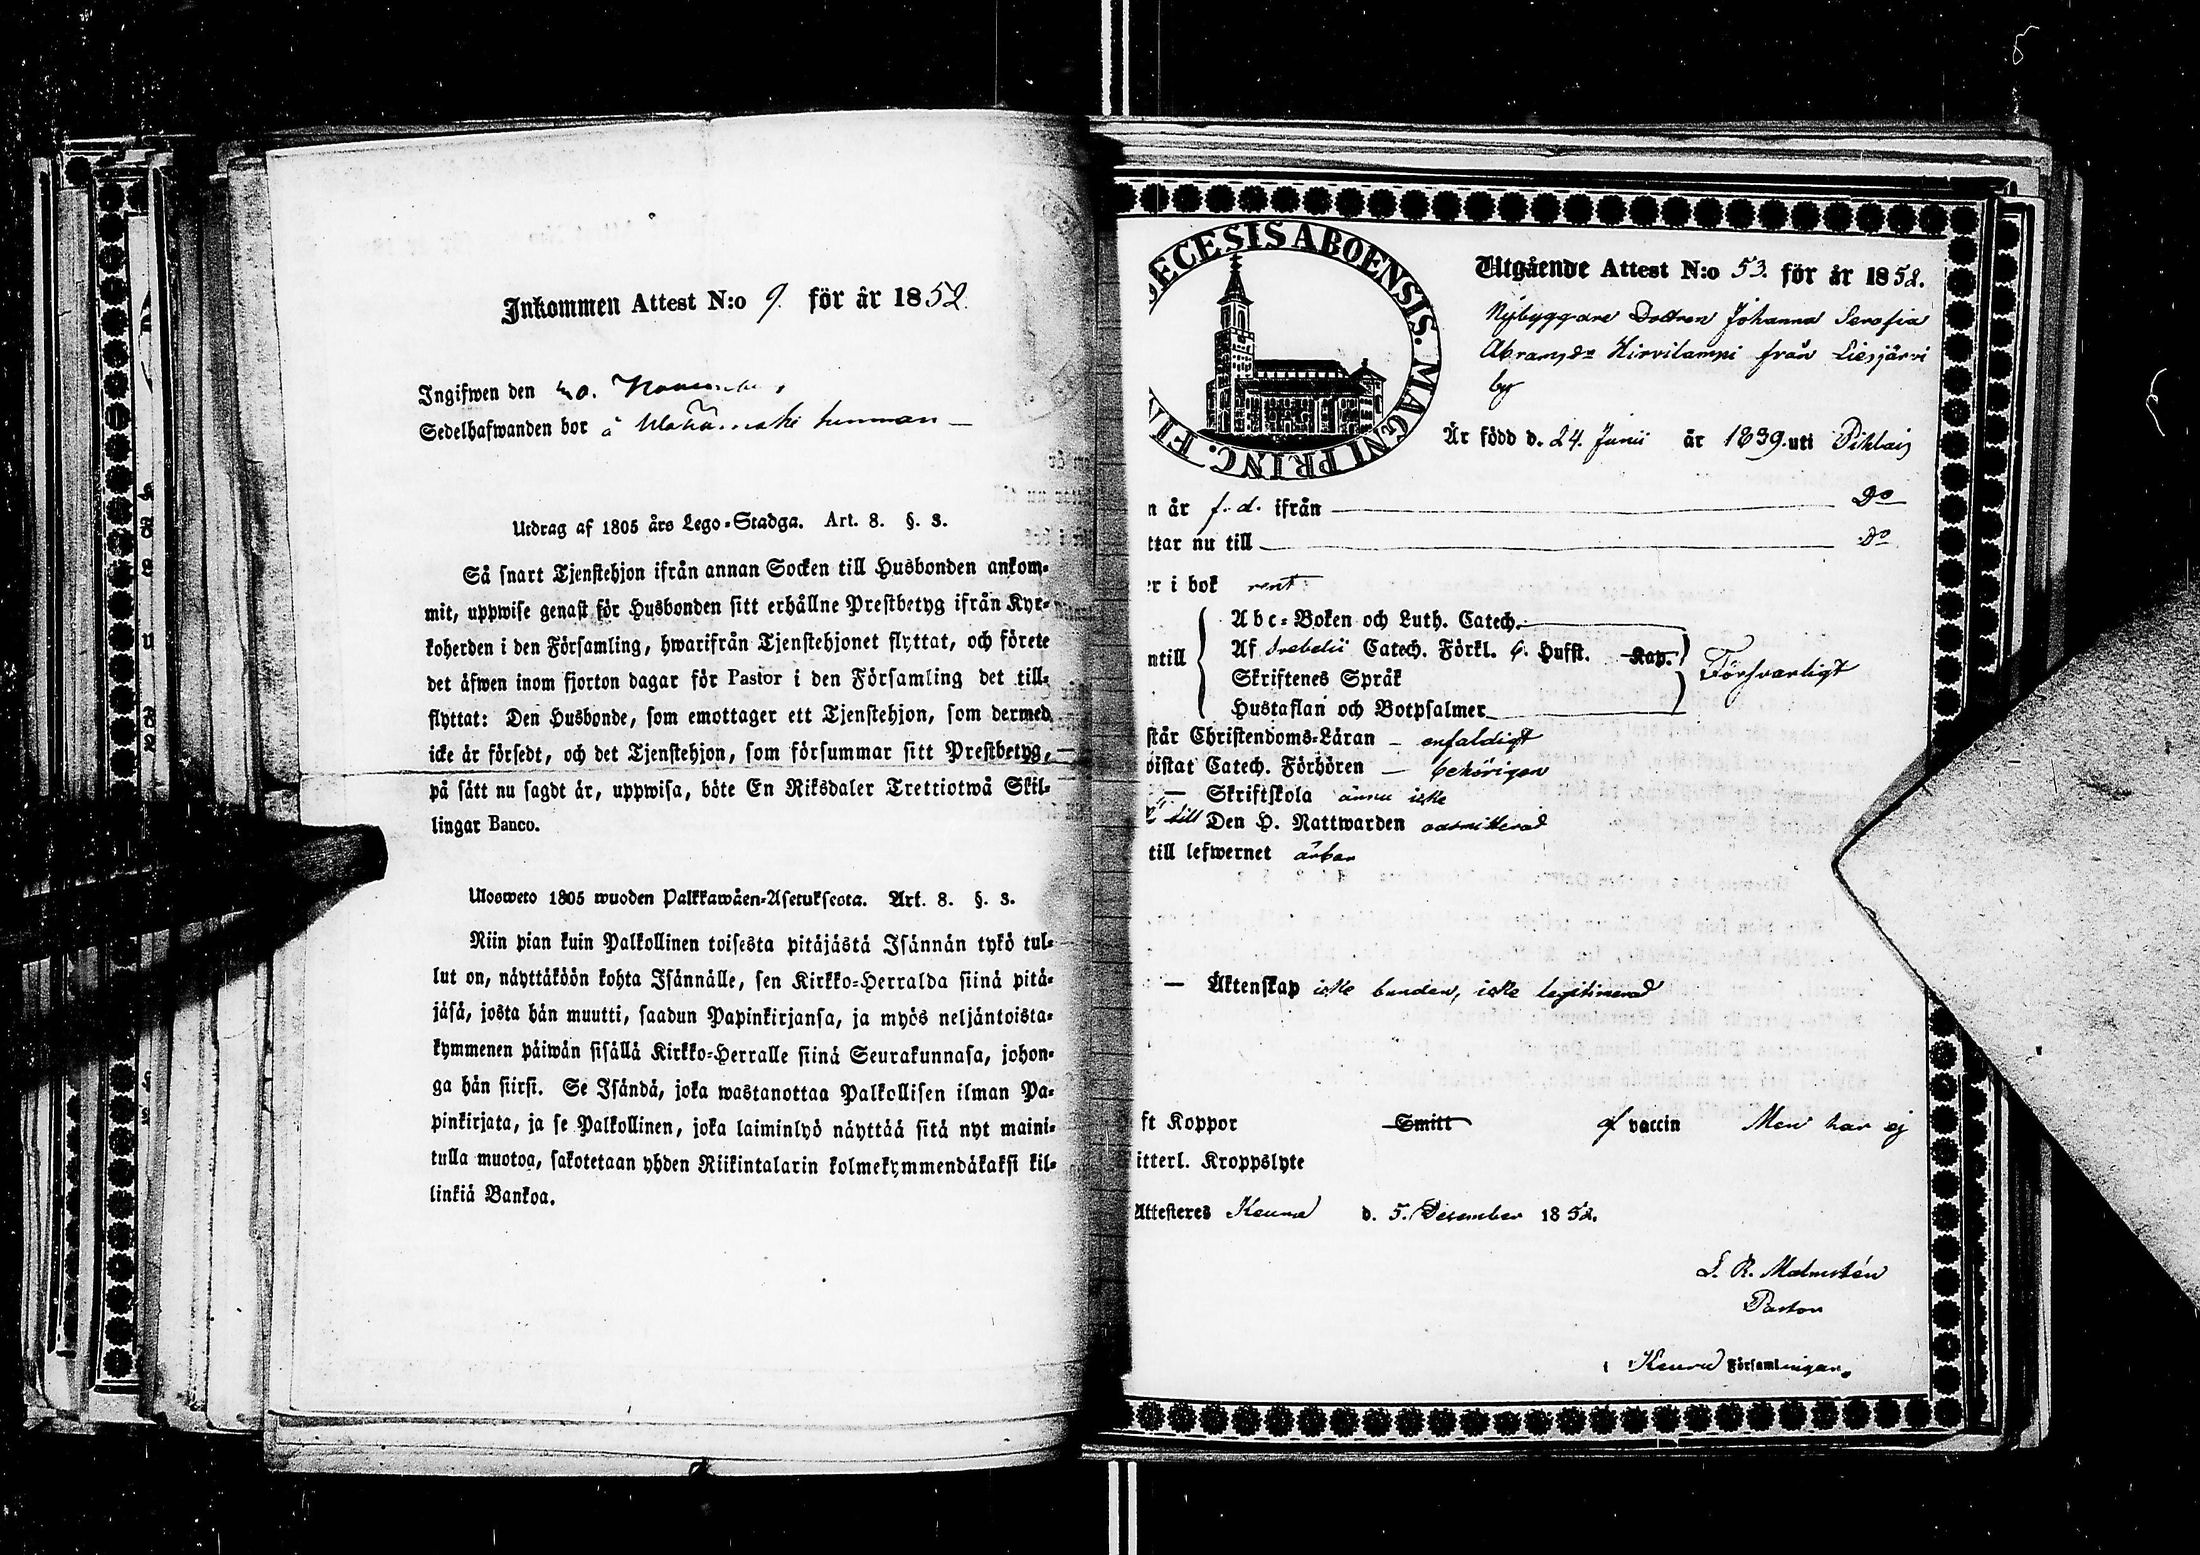 Inkommen Attest N:o 9. för år 1852.
Ingifwen den 20. November
Sedelhafwanden bor å
Utdrag af 1805 års Lego-Stadga. Art. 8. §. 3.
Så snart Tjenstehjon ifrån annan Socken till Husbonden ankom-
mit, uppwise genast för Husbonden sitt erhållne Prestbetyg ifrån Kyr-
koherden i den Församling, hwarifrån Tjenstehjonet flyttat, och förete
det äfwen inom fjorton dagar för Pastor i den Församling det till-
flyttat: Den Husbonde, som emottager ett Tjenstehjon, som dermed
icke är försedt, och det Tjenstehjon, som försummar sitt Prestbetyg,
på sätt nu sagdt är, uppwisa, böte En Riksdaler Trettiotwå Skil-
lingar Banco.
Ulosweto 1805 wuoden Palkkawäen-Asetuksesta. Art. 8. §. 3.
Niin pian kuin Palkollinen toisesta pitäjästä Isännän tykö tul-
lut on, näyttäköön kohta Isännälle, sen Kirkko-Herralda siinä pitä-
jäsä, josta hän muutti, saadun Papinkirjansa, ja myös neljäntoista-
kymmenen päiwän sisällä Kirkko-Herralle siinä Seurakunnasa, johon-
ga hän siirsi. Se Isändä, joka wastanottaa Palkollisen ilman Pa-
pinkirjata, ja se Palkollinen, joka laiminlyö näyttää sitä nyt maini-
tulla muotoa, sakotetaan yhden Riikintalarin kolmekymmendäkaksi kil-
linkiä Bankoa.
ECESIS ABOENSIS. MAGNI PRINC. FIN
Utgående Attest N:o 53. för år 1852.
Nybyggare Dottren Johanna Serafia
Abramsdr Hirvilampi från Liesjärvi
by
Är född d. 24. Junii år 1839. uti Pihlais
n år f. d. ifrån Do
ttar nu till Do
er i bok rent
ntill
Abc-Boken och Luth. Catech.
Af Svebelii Catech. Förkl. 6. Hufst. Kap.
Skriftenes Språk
Hustaflan och Botpsalmer
Försvarligt
står Christendoms-Läran – enfaldigt
wistat Catech. Förhören – behörigen
– Skriftskola ännu icke
till Den H. Nattwarden oadmitterad
till lefwernet ärbar
– Äktenskap icke bunden, icke legitimerad
ft Koppor Smitt af vaccin Men har ej
itterl. Kroppslyte
Attesteres Keuru d. 5. December 1852.
L. R. Malmstén
Pastor
i Keuru Församlingar.